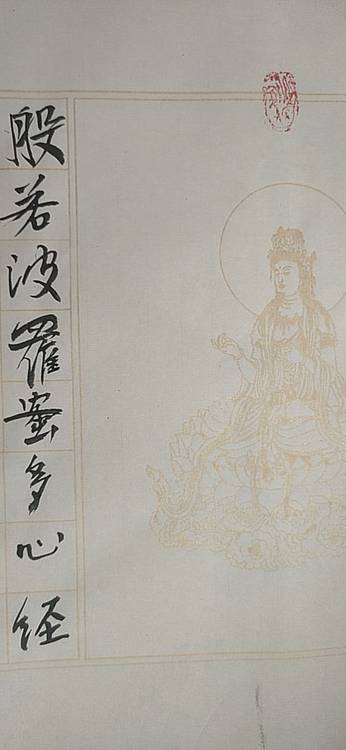 般若波羅蜜多心经